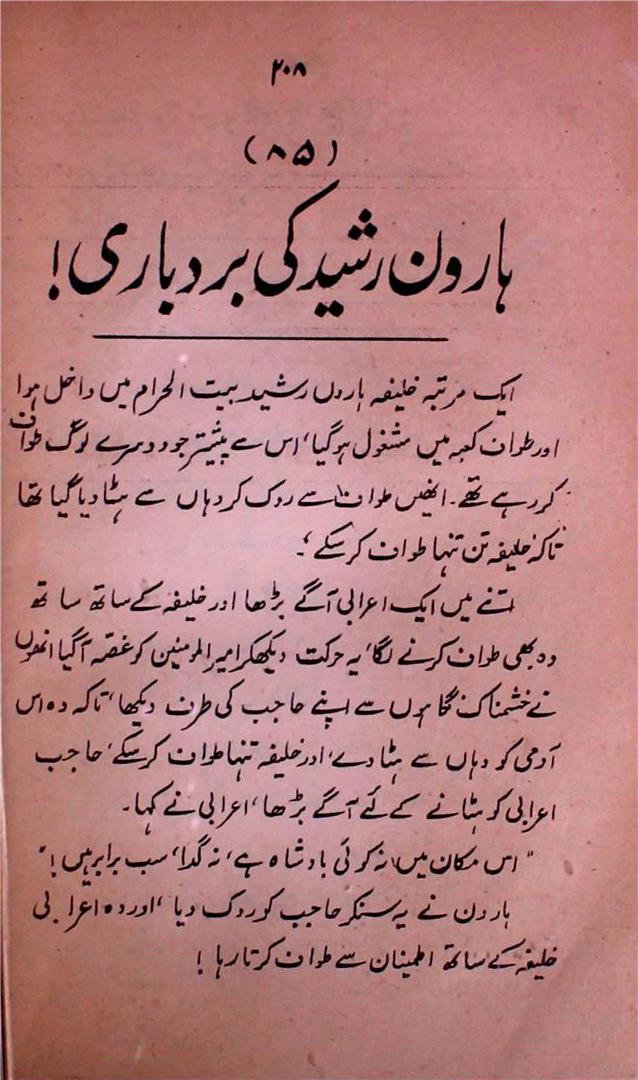 ۲۰۸
(۸۵)
ہارون رشید کی بردباری!
ایک مرتبہ خلیفہ ہارون رشید بیت الحرام میں داخل ہوا
اور طواف کعبہ میں مشغول ہوگیا، اس سے پیشتر جو دوسرے لوگ طواف
کر رہے تھے۔ انھیں طواف سے روک کر وہاں سے ہٹا دیا گیا تھا
تاکہ خلیفہ تن تنہا طواف کر سکے،۔
اتنے میں ایک اعرابی آگے بڑھا اور خلیفہ کے ساتھ ساتھ
وہ بھی طواف کرنے لگا، یہ حرکت دیکھکر امیر المومنین کو غصہ آگیا انھوں
نے خشمناک نگاہوں سے اپنے حاجب کی طرف دیکھا، تاکہ وہ اس
آدمی کو وہاں سے ہٹا دے، اور خلیفہ تنہا طواف کر سکے، حاجب
اعرابی کو ہٹانے کے لئے آگے بڑھا، اعرابی نے کہا۔
"اس مکان میں، نہ کوئی بادشاہ ہے، نہ گدا، سب برابر ہیں!"
ہارون نے یہ سنکر حاجب کو روک دیا، اور وہ اعرابی
خلیفہ کے ساتھ اطمینان سے طواف کرتا رہا!